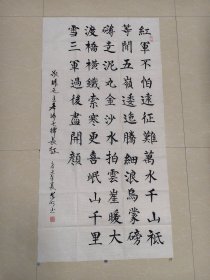 紅軍不怕遠征難萬水千山祗
等閒五嶺逶迤騰細浪烏蒙磅
礴走泥丸金沙水拍雲崖暖大
渡橋橫鐵索寒更喜岷山千里
雪三軍過後盡開顏
毛主席詩七律長征